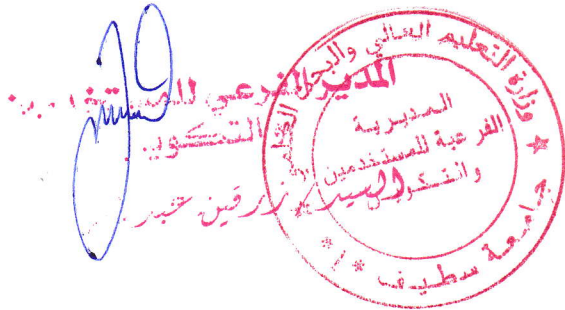 وزارة التعليم العالي والبحث العلمي
المديرية
الفرعية للمستخدمين
والتكوين
★ جامعة سطيف * 1 *
المدير الفرعي للمستخدمين
والتكوين
السيد زرقين